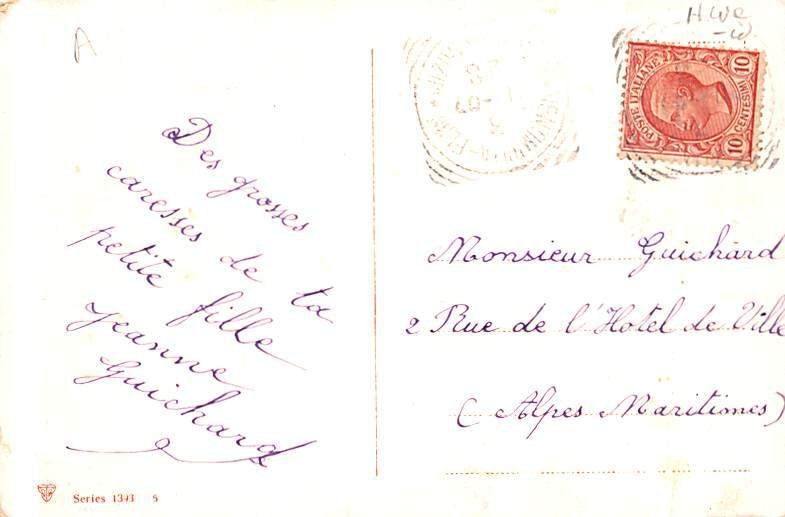 A
Des grosses
caresses de ta
petite fille
Jeanne
Guichard
Series 1393 5
POSTE ITALIANE
10 CENTESIMI 10
Monsieur Guichard
2 Rue de l'Hotel de Ville
(Alpes Maritimes)